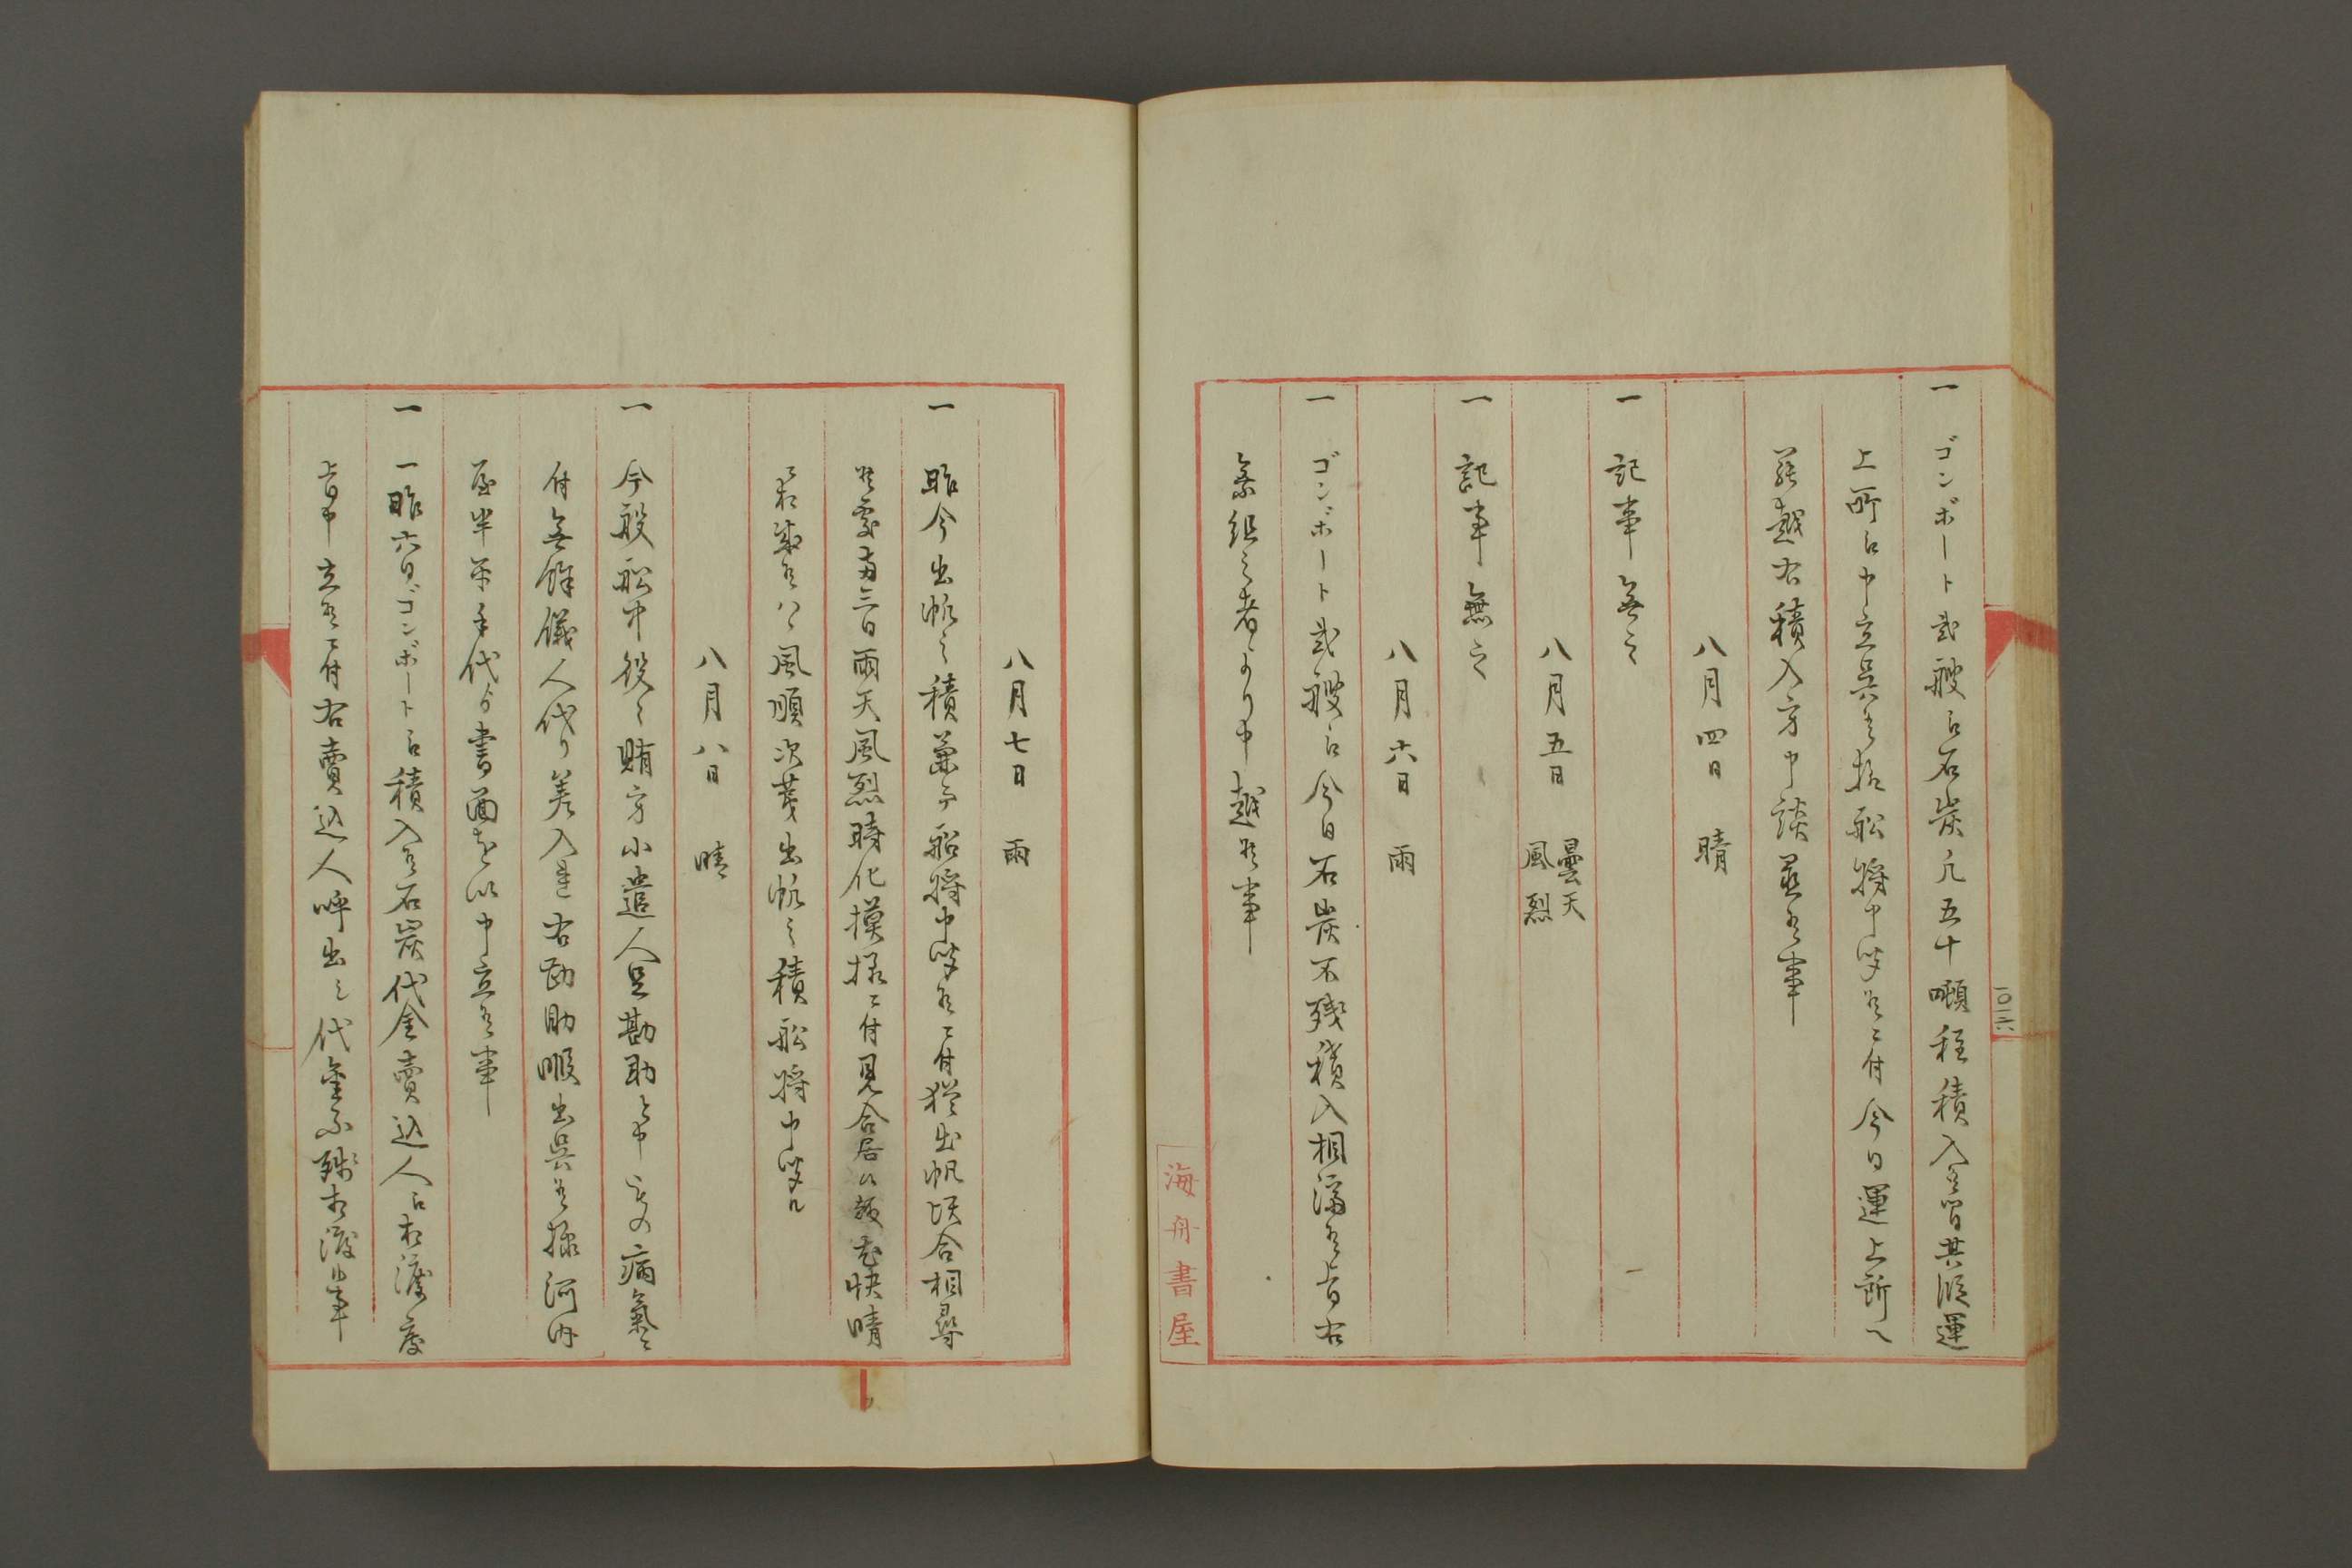 一 ゴンボート弐艘江石炭凡五十噸程積入候間其段運
上所江申立呉候様船将申聞候ニ付今日運上所へ
罷越右積入方申談置候事
八月四日 晴
一 記事無之
八月五日 曇天
風烈
一 記事無之
八月六日 雨
一 ゴンボート弐艘江今日石炭不残積入相済候旨右
乗組之者より申越候事
一〇二六
海舟書屋
八月七日 雨
一 昨今出帆之積兼而船将申聞候ニ付猶出帆頃合相尋
候處両三日雨天風烈時化模様ニ付見合居候故快晴
風順次第出帆之積船将申聞候
八月八日 晴
一 今般船中役々賄方小遣人足勘助与申もの病氣ニ
付無餘儀人代り差入置右勘助暇出呉候様河内
屋半平手代より書面を以申立候事
一 一昨六日ゴンボート江積入候石炭代金賣込人江相渡度
旨申立候ニ付右賣込人呼出し代金不残相渡候事